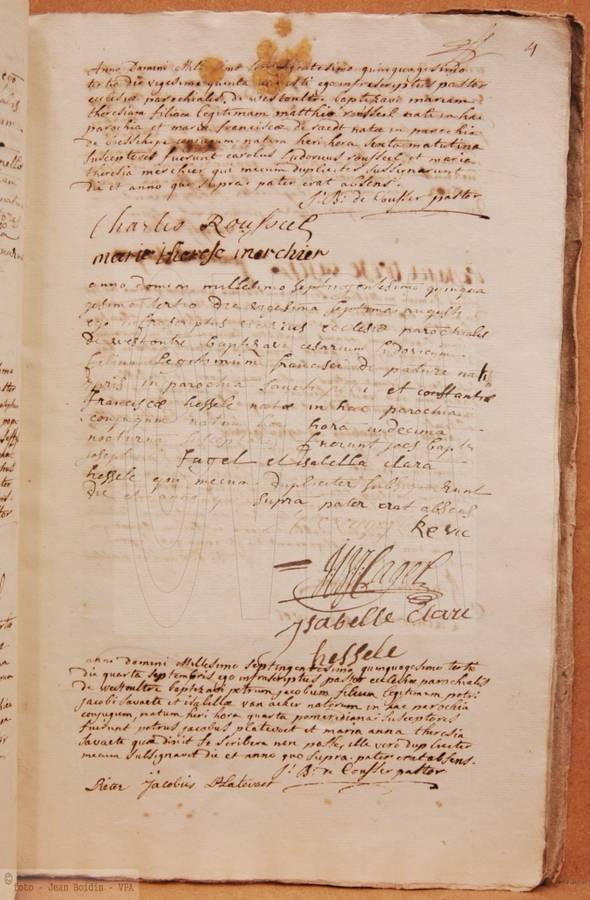 4
Anno Domini Millesimo septingentesimo quinquagesimo
tertio die vigesima quinta augusti ego infrascriptus pastor
ecclesiæ parochialis de westoutre baptizavi mariam
theresiam filiam legitimam matthiæ roussel nati in hac
parochia et mariæ franciscæ de saedt natæ in parochia
de conjugum natam heri hora sexta matutina
susceptores fuerunt carolus Ludovicus roussel et maria
theresia merchier qui mecum dupliciter subsignarunt
die et anno quo supra pater erat absens.
J: B: de Cousser pastor
Charles Roussel
marie therese merchier
anno domini millesimo septingentesimo quinqua
gesimo tertio die vigesima septima augusti
ego infrascriptus vicarius ecclesiæ parochialis
de westoutre baptizavi cesarium ludovicum
filium legitimum francisci de padure nati
ypris in parochia Sancti petri et constantiæ
franciscæ hessele natæ in hac parochia
conjugum natum hora undecima
nocturna fuerunt joes bapt
joseph fagel et isabella clara
hessele qui mecum dupliciter subsignarunt
die et anno quo supra pater erat absens
fagel
isabelle Clare
hessele
anno domini Millesimo septingentesimo quinquagesimo tertio
die quarta septembris ego infrascriptus pastor ecclesiæ parochialis
de westoutre baptizavi petrum jacobum filium legitimum petri
jacobi Savaete et isabellæ van acker natorum in hac parochia
conjugum, natum heri hora quarta pomeridiana: susceptores
fuerunt petrus jacobus platevoet et maria anna theresia
Savaete quæ dixit se scribere non posse, ille vero dupliciter
mecum subsignavit die et anno quo supra: pater erat absens.
J: B: de Cousser pastor
Pieter jacobus Platevoet
© foto - Jean Boidin - VPA